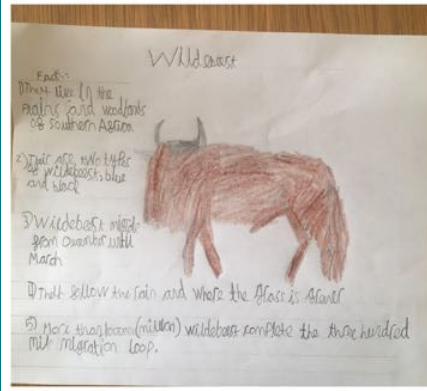 Wildebeest
Facts:
1) They live in the
plains and woodlands
of southern Africa
2) Their are two types
of wildebeest, blue
and black
3) Wildebeest
from December until
March
4) They follow the rain and where the grass is
5) More than (million) wildebeest complete the three hundred
mile migration loop.